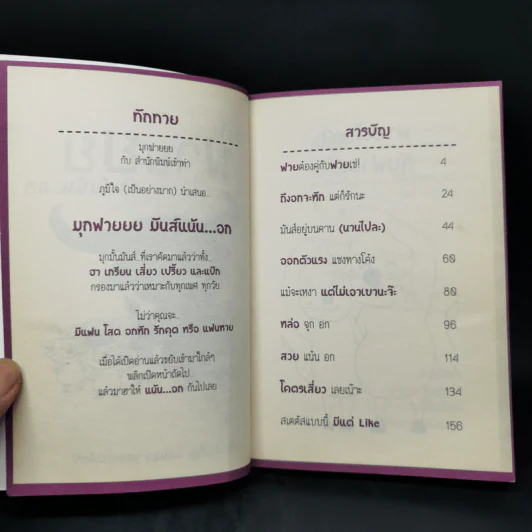 ทักทาย
มุกฟายยย
กับ สำนักพิมพ์เช้าท่า
ภูมิใจ (เป็นอย่างมาก) นำเสนอ...
มุกฟายยย มีนส์แน้น...อก
มุกมั้นมันส์..ที่เราคัดมาแล้วว่าทั้ง..
ฮา เกรียน เสี่ยว เปรี้ยว และแป้ก
กรองมาแล้วว่าเหมาะกับทุกเพศ ทุกวัย
ไม่ว่าคุณจะ..
มีแฟน โสด อกหัก รักคุด หรือ แฟนตาย
เมื่อได้เปิดอ่านแล้วขยับเข้ามาใกล้ๆ
พลิกเปิดหน้าถัดไป..
แล้วมาฮาให้ แน้น...อก กันไปเลย
สารบัญ
ฟายต้องคู่กับฟายเซ่! 4
ถึงอกจะหัก แต่ก็รักนะ 24
มันส์อยู่บนคาน (นานไปละ) 44
ออกตัวแรง แซงทางโค้ง 60
แม้จะเหงา แต่ไม่เอาเขานะจ๊ะ 80
หล่อ จุก อก 96
สวย แน้น อก 114
โคตรเสี่ยว เลยเน้าะ 134
สเตตัสแบบนี้ มีแต่ Like 156